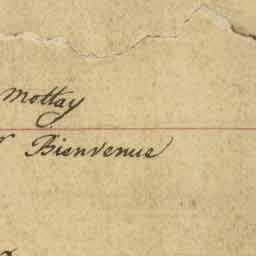 Mottay
Bienvenue